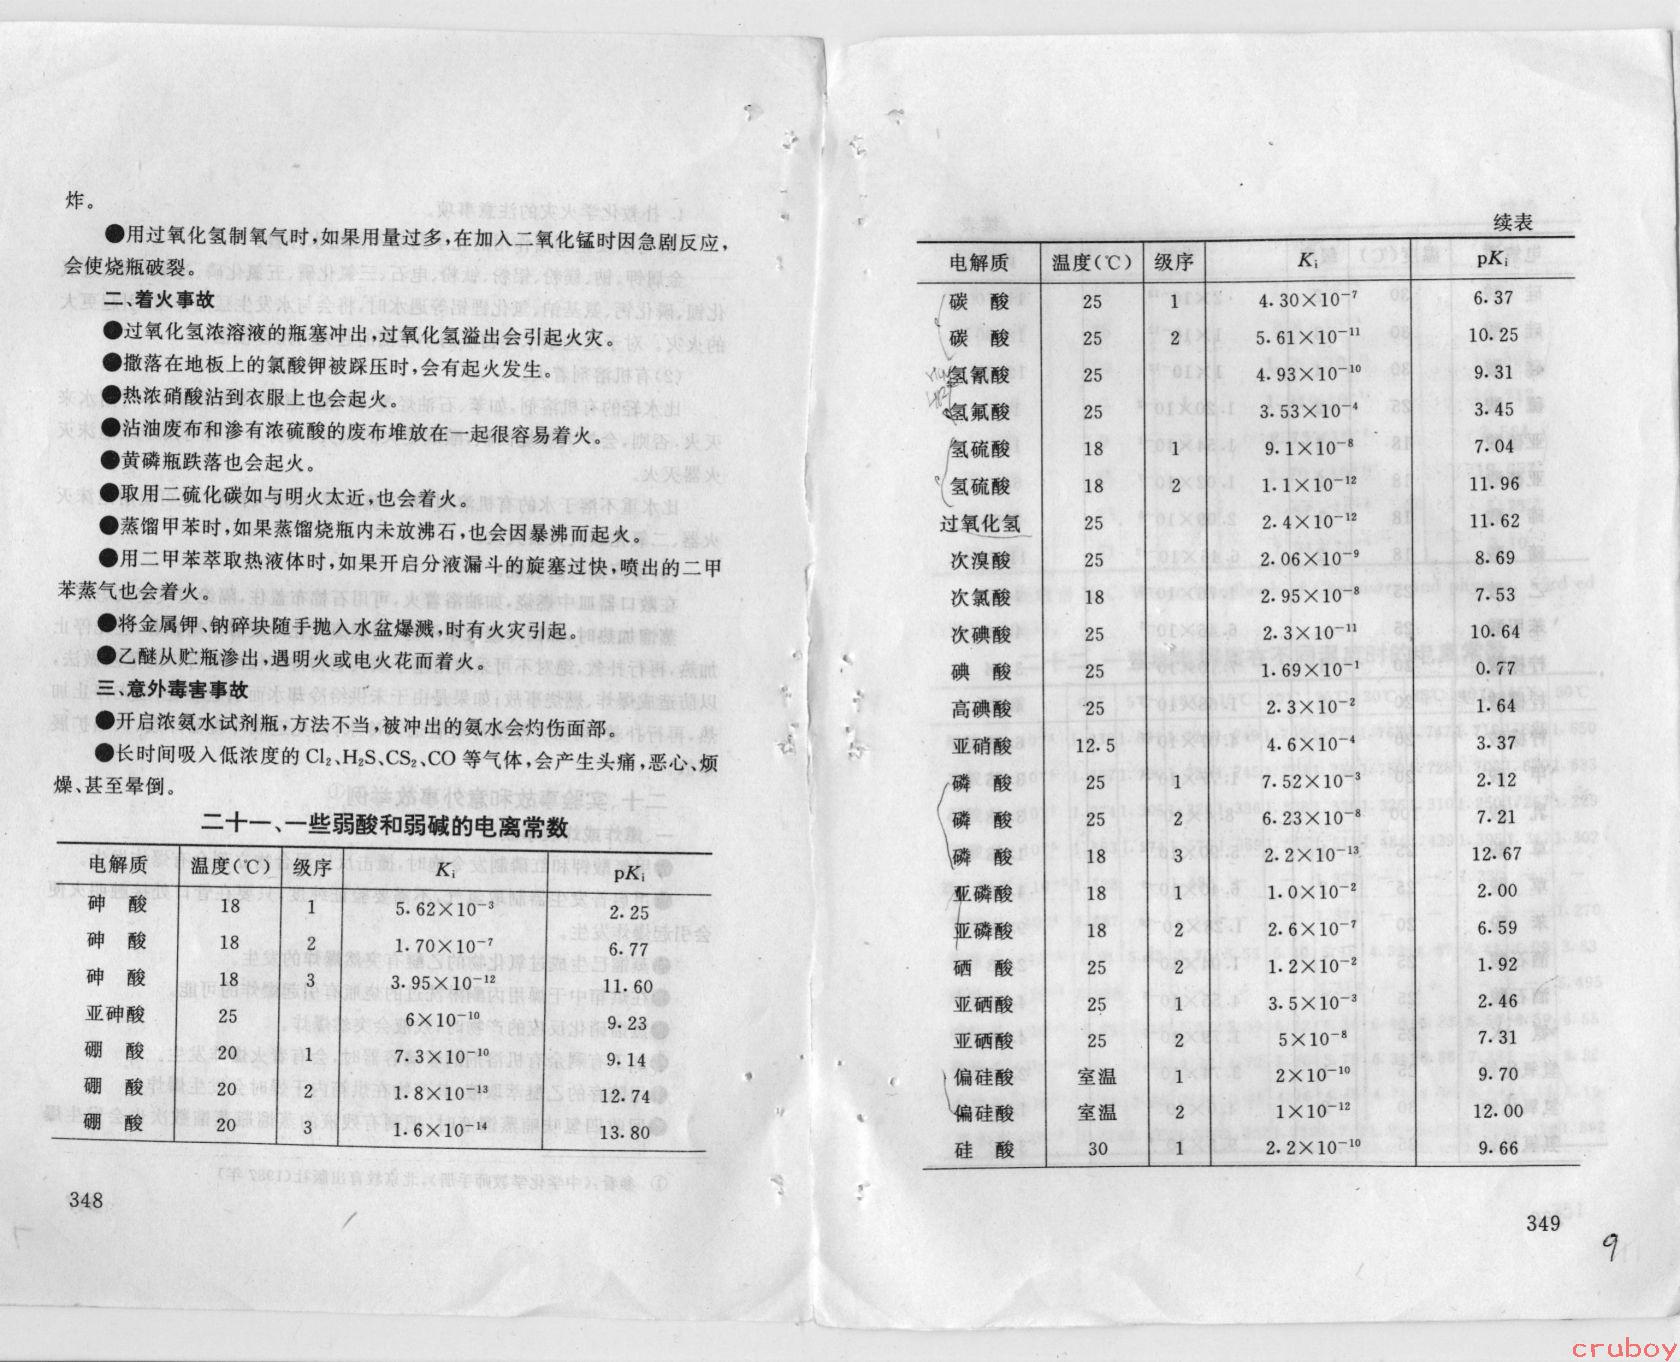 炸。
●用过氧化氢制氧气时,如果用量过多,在加入二氧化锰时因急剧反应,
会使烧瓶破裂。
二、着火事故
●过氧化氢浓溶液的瓶塞冲出,过氧化氢溢出会引起火灾。
●撒落在地板上的氯酸钾被踩压时,会有起火发生。
●热浓硝酸沾到衣服上也会起火。
●沾油废布和渗有浓硫酸的废布堆放在一起很容易着火。
●黄磷瓶跌落也会起火。
●取用二硫化碳如与明火太近,也会着火。
●蒸馏甲苯时,如果蒸馏烧瓶内未放沸石,也会因暴沸而起火。
●用二甲苯萃取热液体时,如果开启分液漏斗的旋塞过快,喷出的二甲
苯蒸气也会着火。
●将金属钾、钠碎块随手抛入水盆爆溅,时有火灾引起。
●乙醚从贮瓶渗出,遇明火或电火花而着火。
三、意外毒害事故
●开启浓氨水试剂瓶,方法不当,被冲出的氨水会灼伤面部。
●长时间吸入低浓度的 Cl₂、H₂S、CS₂、CO 等气体,会产生头痛,恶心、烦
燥、甚至晕倒。
二十一、一些弱酸和弱碱的电离常数
电解质 温度(℃) 级序 Kᵢ pKᵢ
砷 酸 18 1 5.62×10⁻³ 2.25
砷 酸 18 2 1.70×10⁻⁷ 6.77
砷 酸 18 3 3.95×10⁻¹² 11.60
亚砷酸 25 6×10⁻¹⁰ 9.23
硼 酸 20 1 7.3×10⁻¹⁰ 9.14
硼 酸 20 2 1.8×10⁻¹³ 12.74
硼 酸 20 3 1.6×10⁻¹⁴ 13.80
348
续表
电解质 温度(℃) 级序 Kᵢ pKᵢ
碳 酸 25 1 4.30×10⁻⁷ 6.37
碳 酸 25 2 5.61×10⁻¹¹ 10.25
氢氰酸 25 4.93×10⁻¹⁰ 9.31
氢氟酸 25 3.53×10⁻⁴ 3.45
氢硫酸 18 1 9.1×10⁻⁸ 7.04
氢硫酸 18 2 1.1×10⁻¹² 11.96
过氧化氢 25 2.4×10⁻¹² 11.62
次溴酸 25 2.06×10⁻⁹ 8.69
次氯酸 18 2.95×10⁻⁸ 7.53
次碘酸 25 2.3×10⁻¹¹ 10.64
碘 酸 25 1.69×10⁻¹ 0.77
高碘酸 25 2.3×10⁻² 1.64
亚硝酸 12.5 4.6×10⁻⁴ 3.37
磷 酸 25 1 7.52×10⁻³ 2.12
磷 酸 25 2 6.23×10⁻⁸ 7.21
磷 酸 18 3 2.2×10⁻¹³ 12.67
亚磷酸 18 1 1.0×10⁻² 2.00
亚磷酸 18 2 2.6×10⁻⁷ 6.59
硒 酸 25 2 1.2×10⁻² 1.92
亚硒酸 25 1 3.5×10⁻³ 2.46
亚硒酸 25 2 5×10⁻⁸ 7.31
偏硅酸 室温 1 2×10⁻¹⁰ 9.70
偏硅酸 室温 2 1×10⁻¹² 12.00
硅 酸 30 1 2.2×10⁻¹⁰ 9.66
349
9
cruboy